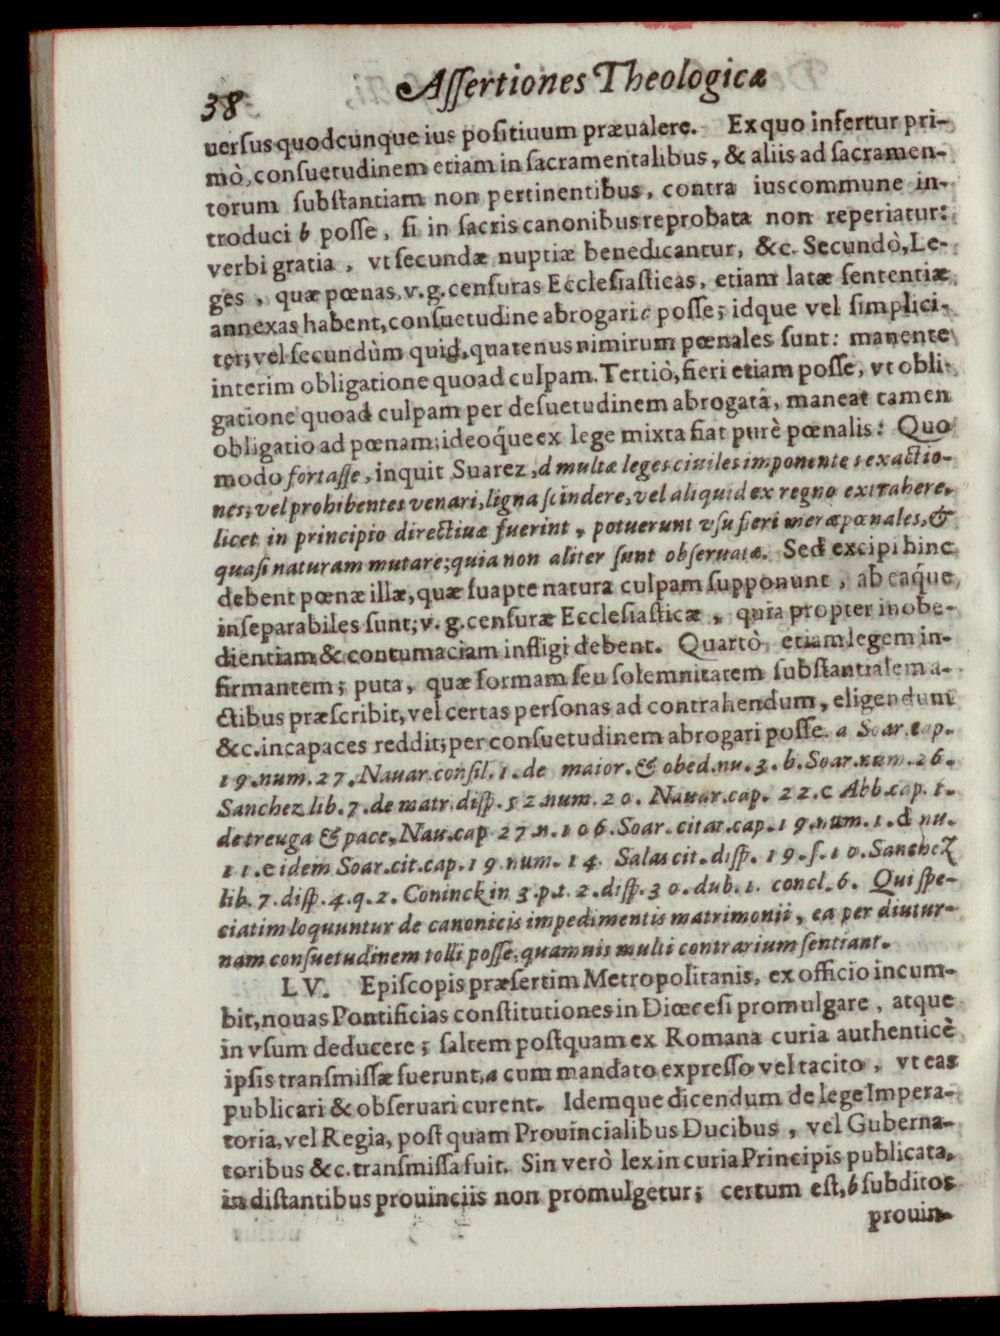 38 Assertiones Theologicæ
uersus quodcunque ius positiuum præualere. Ex quo infertur pri-
mò, consuetudinem etiam in sacramentalibus, & aliis ad sacramen-
torum substantiam non pertinentibus, contra ius commune in-
troduci b posse, si in sacris canonibus reprobata non reperiatur:
verbi gratia, vt secundæ nuptiæ benedicantur, &c. Secundò, Le-
ges, quæ pœnas, v. g. censuras Ecclesiasticas, etiam latæ sententiæ
annexas habent, consuetudine abrogari c posse; idque vel simplici-
ter, vel secundùm quid, quatenus nimirum pœnales sunt: manente
interim obligatione quoad culpam. Tertiò, fieri etiam posse, vt obli-
gatione quoad culpam per desuetudinem abrogatâ, maneat tamen
obligatio ad pœnam; ideoq́ue ex lege mixta fiat purè pœnalis: Quo
modo fortasse, inquit Suarez, d multæ leges ciuiles imponentes exactio-
nes, vel prohibentes venari, ligna scindere, vel aliquid ex regno extrahere,
licet in principio directiuæ fuerint, potuerunt vsu fieri meræ pœnales, &
quasi naturam mutare; quia non aliter sunt obseruatæ. Sed excipi hinc
debent pœnæ illæ, quæ suapte natura culpam supponunt, ab eaq́ue
inseparabiles sunt; v. g. censuræ Ecclesiasticæ, quia propter inobe-
dientiam & contumaciam infligi debent. Quartò, etiam legem in-
firmantem; puta, quæ formam seu solemnitatem substantialem a-
ctibus præscribit, vel certas personas ad contrahendum, eligendum
&c. incapaces reddit; per consuetudinem abrogari posse. a Soar. cap.
19. num. 27. Nauar. consil. 1. de maior. & obed. nu. 3. b. Soar. num. 26.
Sanchez lib. 7. de matr. disp. 52. num. 20. Nauar. cap. 22. c Abb. cap. 1.
de treuga & pace, Nau. cap 27. n. 106. Soar. citat. cap. 19. num. 1. d nu.
11. e idem Soar. cit. cap. 19. num. 14. Salas cit. disp. 19. s. 10. Sanchez
lib. 7. disp. 4. q. 2. Coninck in 3. p. t. 2. disp. 30. dub. 1. concl. 6. Qui spe-
ciatim loquuntur de canonicis impedimentis matrimonii, ea per diutur-
nam consuetudinem tolli posse, quamuis multi contrarium sentiant.
LV. Episcopis præsertim Metropolitanis, ex officio incum-
bit, nouas Pontificias constitutiones in Diœcesi promulgare, atque
in vsum deducere; saltem postquam ex Romana curia authenticè
ipsis transmissæ fuerunt, a cum mandato expresso vel tacito, vt eas
publicari & obseruari curent. Idemque dicendum de lege Impera-
toria, vel Regia, post quam Prouincialibus Ducibus, vel Guberna-
toribus &c. transmissa fuit. Sin verò lex in curia Principis publicata,
in distantibus prouinciis non promulgetur; certum est, b subditos
prouin-